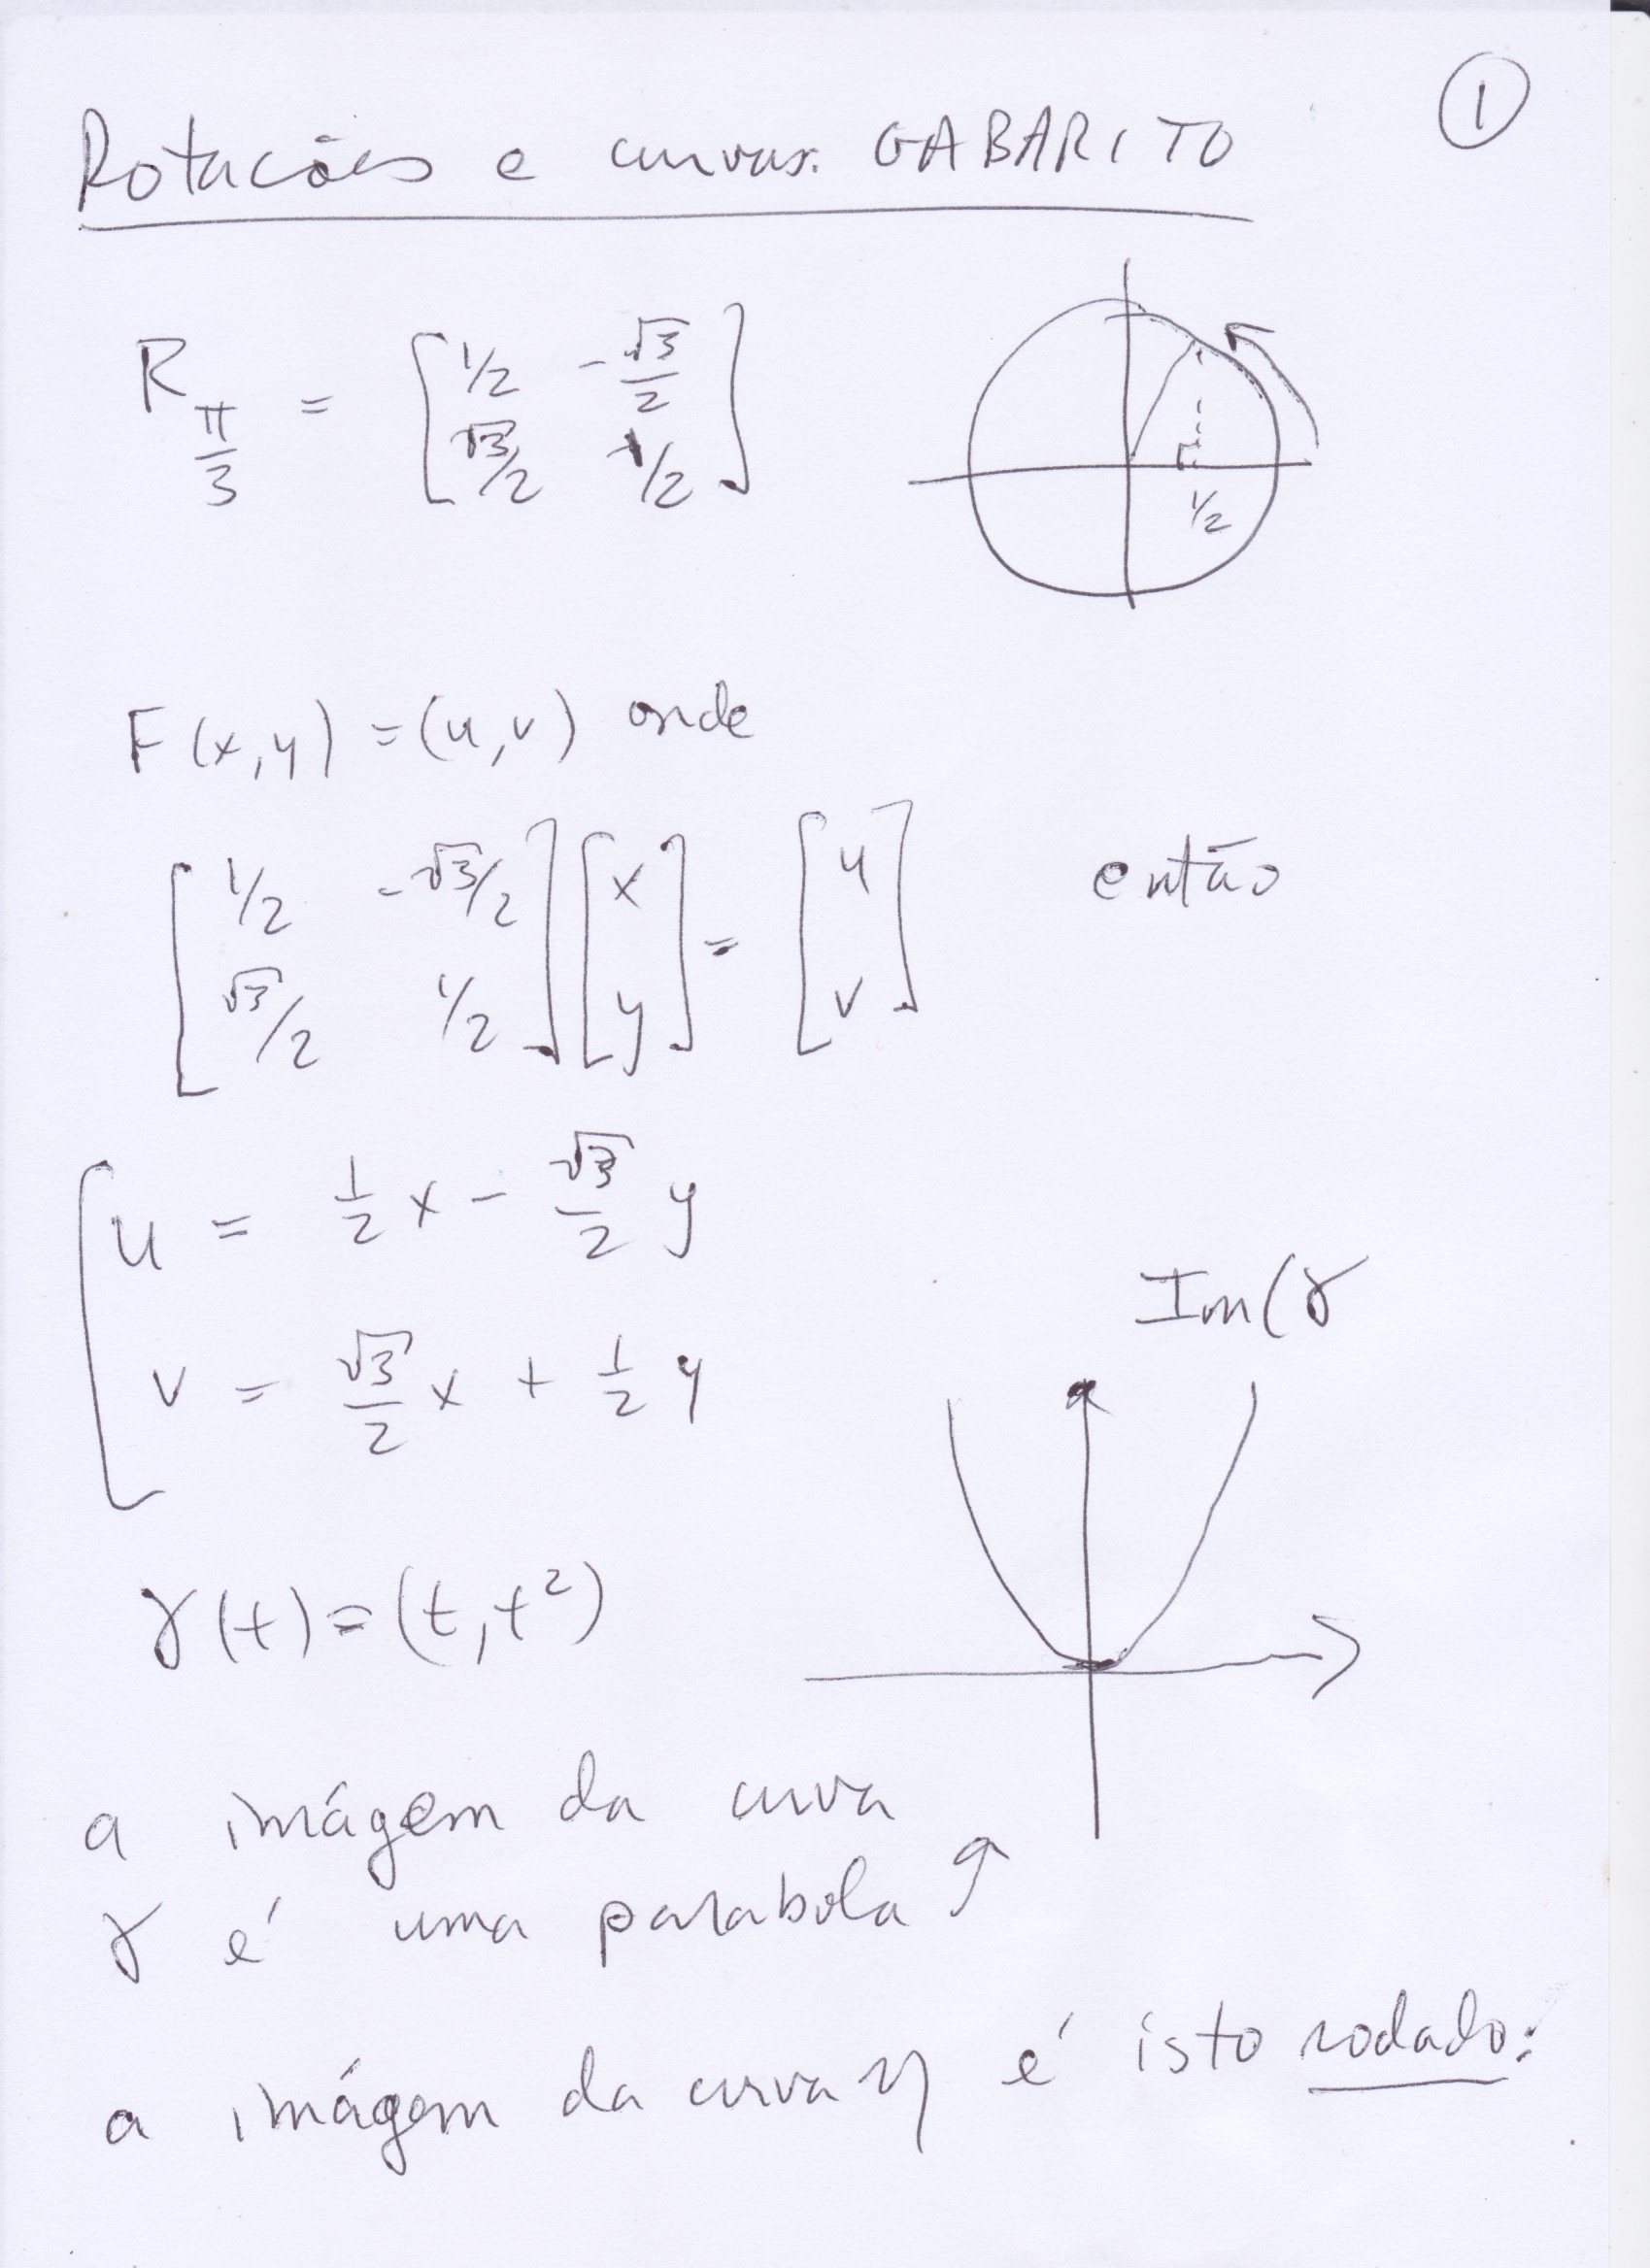 ①
Rotacões e curvas: GABARITO
R π/3 = [ 1/2 -√3/2
√3/2 1/2 ]
1/2
F(x,y) = (u,v) onde
[ 1/2 -√3/2 ] [ x ] = [ u ] então
[ √3/2 1/2 ] [ y ] [ v ]
u = 1/2 x - √3/2 y
v = √3/2 x + 1/2 y
Im(γ
γ(t) = (t, t²)
a imágem da curva
γ é uma parabola
a imágem da curva η é isto rodado: